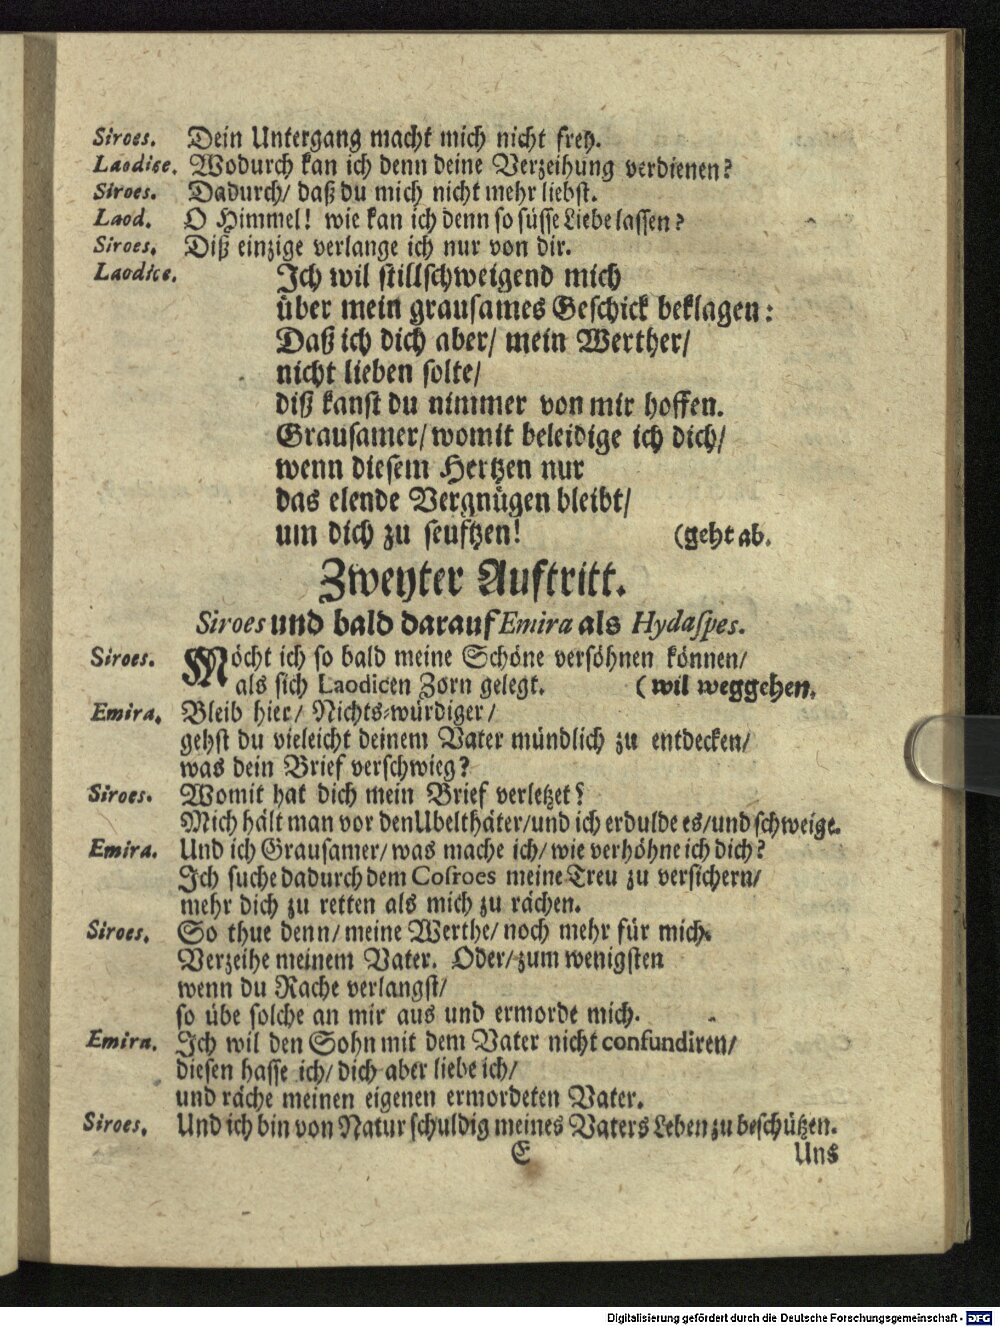 Siroes. Dein Untergang macht mich nicht frey.
Laodice. Wodurch kan ich denn deine Verzeihung verdienen?
Siroes. Dadurch/ daß du mich nicht mehr liebst.
Laod. O Himmel! wie kan ich denn so süsse Liebe lassen?
Siroes. Diß einzige verlange ich nur von dir.
Laodice. Ich wil stillschweigend mich
über mein grausames Geschick beklagen:
Daß ich dich aber/ mein Werther/
nicht lieben solte/
diß kanst du nimmer von mir hoffen.
Grausamer/ womit beleidige ich dich/
wenn diesem Hertzen nur
das elende Vergnügen bleibt/
um dich zu seuftzen! (geht ab.
Zweyter Auftritt.
Siroes und bald darauf Emira als Hydaspes.
Siroes. Möcht ich so bald meine Schöne versöhnen können/
als sich Laodicen Zorn gelegt. (wil weggehen.
Emira. Bleib hier/ Nichts-würdiger/
gehst du vieleicht deinem Vater mündlich zu entdecken/
was dein Brief verschwieg?
Siroes. Womit hat dich mein Brief verletzet?
Mich hält man vor den Ubelthäter/ und ich erdulde es/ und schweige.
Emira. Und ich Grausamer/ was mache ich/ wie verhöhne ich dich?
Ich suche dadurch dem Cosroes meine Treu zu versichern/
mehr dich zu retten als mich zu rächen.
Siroes. So thue denn/ meine Werthe/ noch mehr für mich.
Verzeihe meinem Vater. Oder/ zum wenigsten
wenn du Rache verlangst/
so übe solche an mir aus und ermorde mich.
Emira. Ich wil den Sohn mit dem Vater nicht confundiren/
diesen hasse ich/ dich aber liebe ich/
und räche meinen eigenen ermordeten Vater.
Siroes. Und ich bin von Natur schuldig meines Vaters Leben zu beschützen.
E Uns
Digitalisierung gefördert durch die Deutsche Forschungsgemeinschaft - DFG